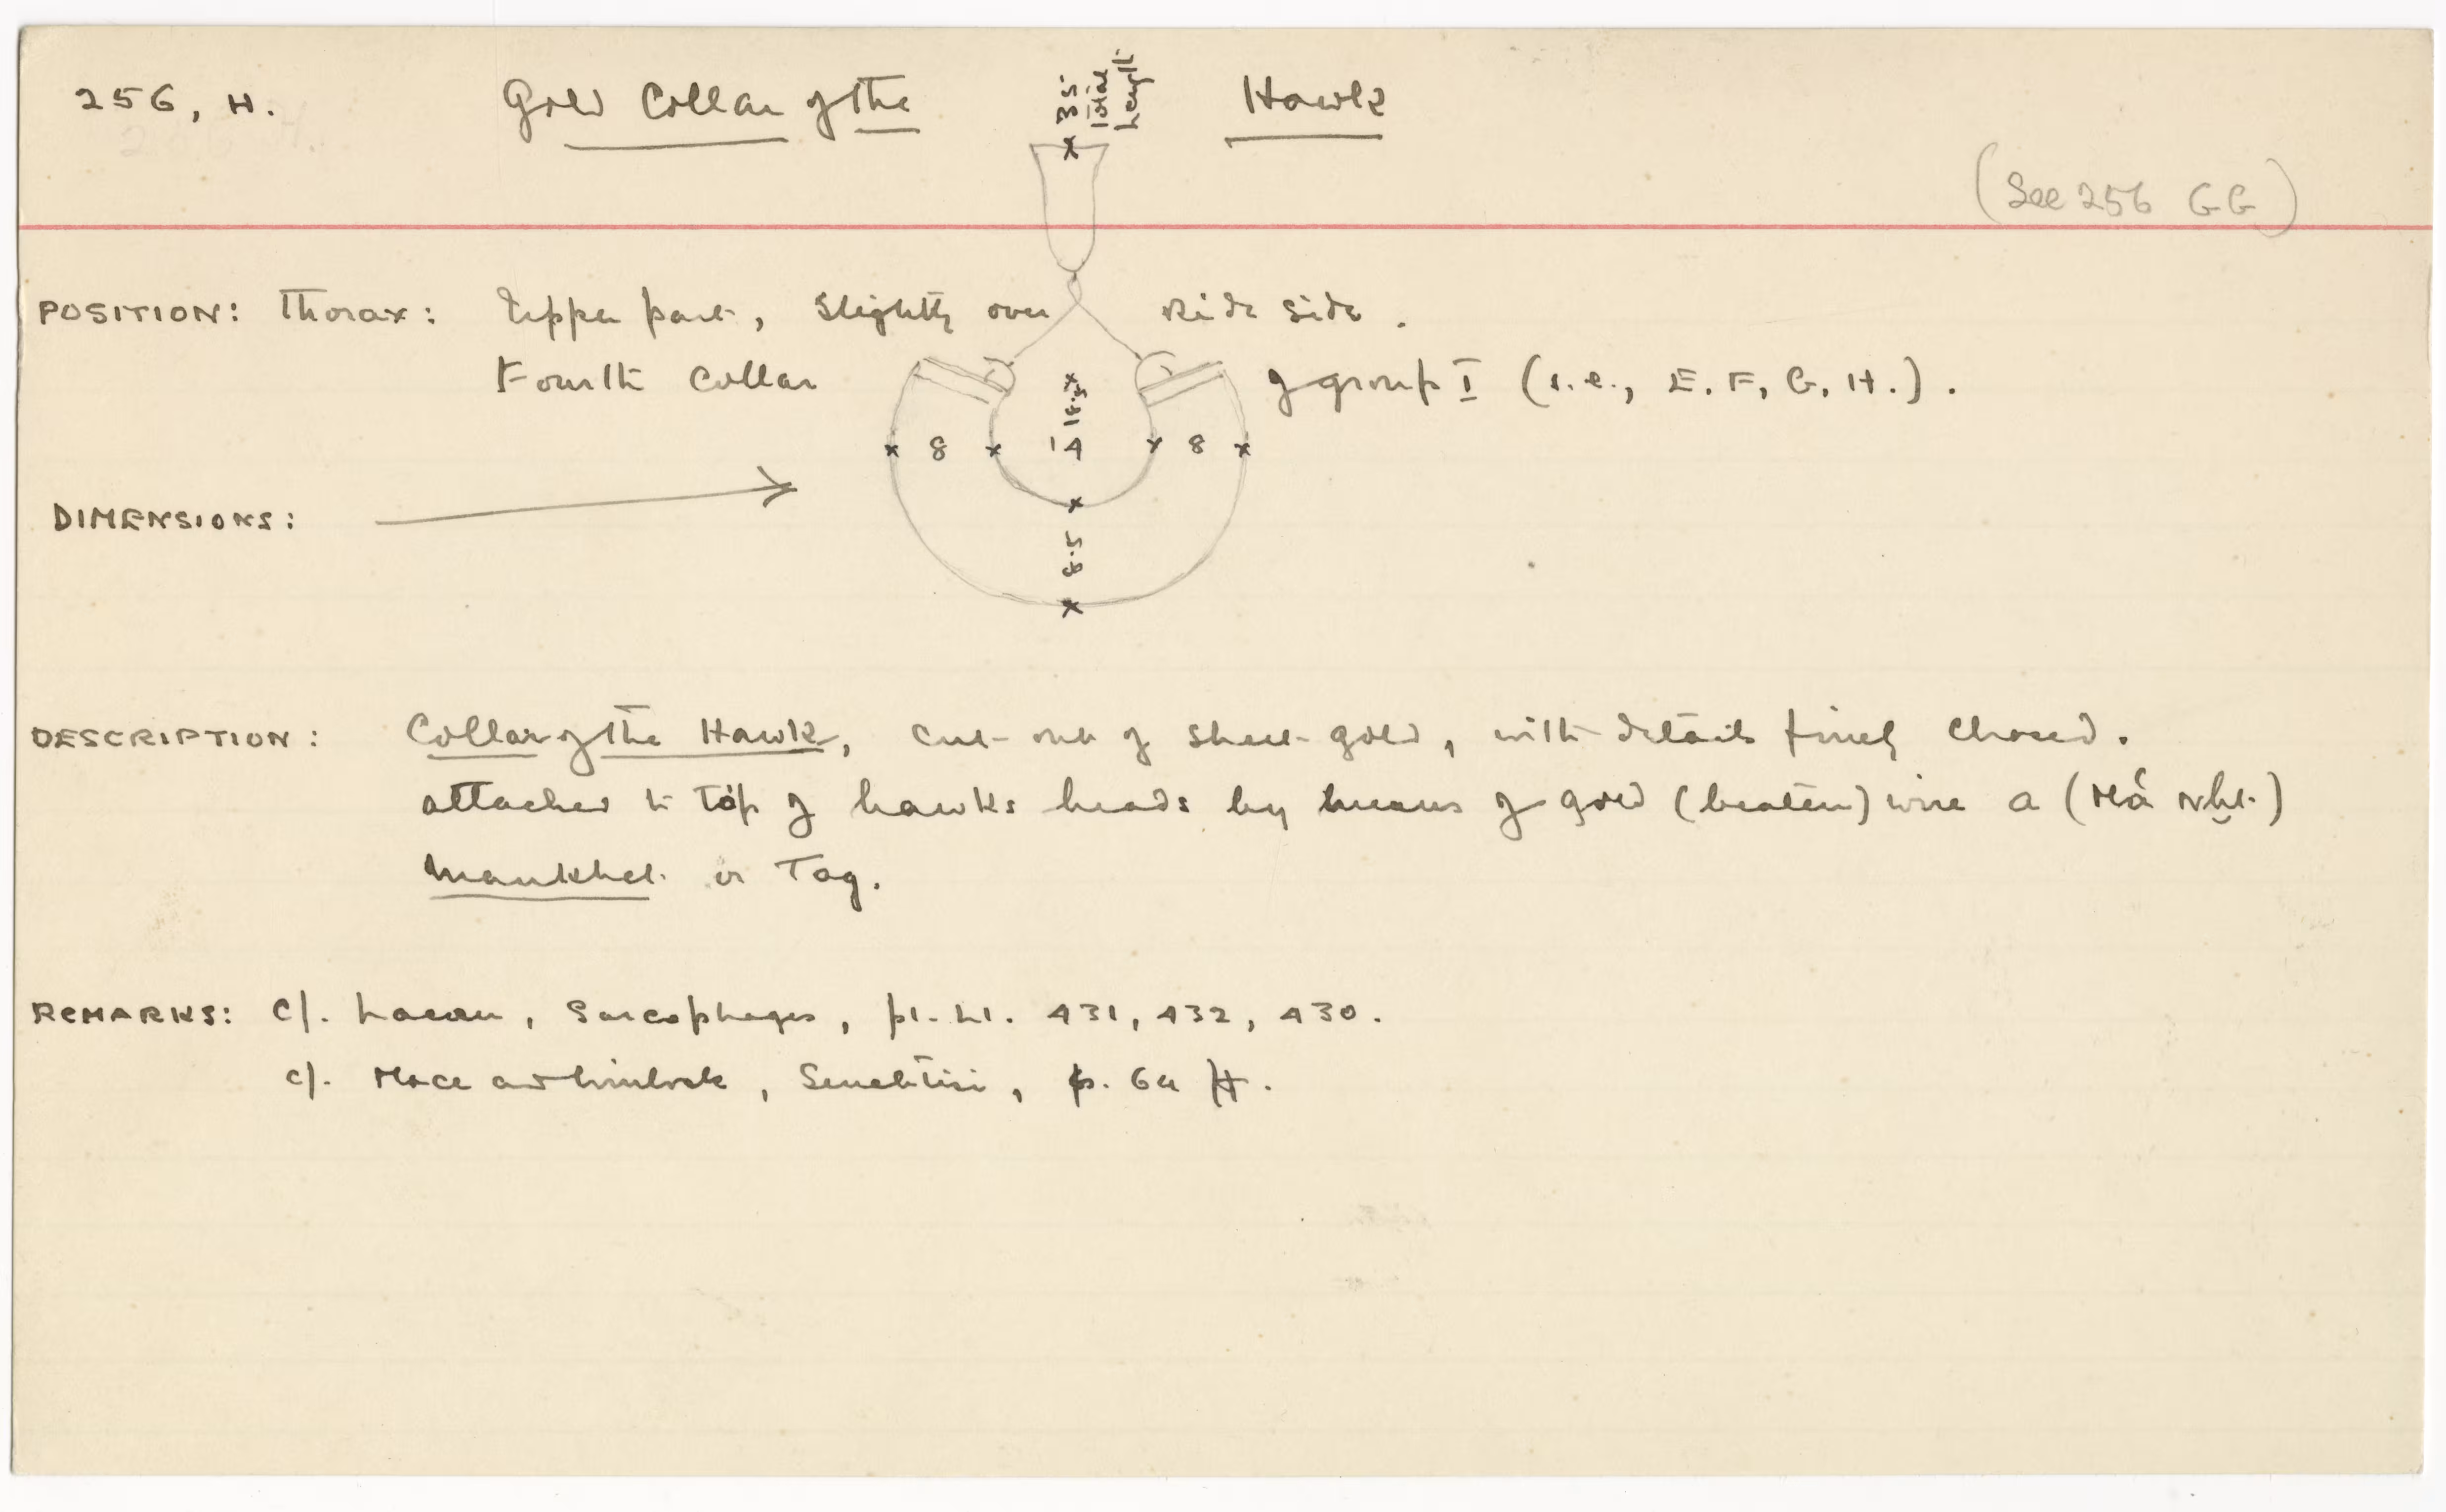 256, H. Gold Collar of the Hawk
35 total height
(See 256 GG)
POSITION: Thorax: Upper part, slightly over side.
Fourth Collar of group I (i.e., E. F, G, H.).
8 14 8
8.5
DIMENSIONS:
DESCRIPTION: Collar of the Hawk, cut-out of sheet-gold, with details finely chased.
attached to top of hawks heads by means of gold (beaten) wire a
mankhet or Tag.
REMARKS: cf. Lacau, Sarcophages, pl. LI. 431, 432, 430.
cf. Mace and Winlock, Senebtisi, p. 64 ff.